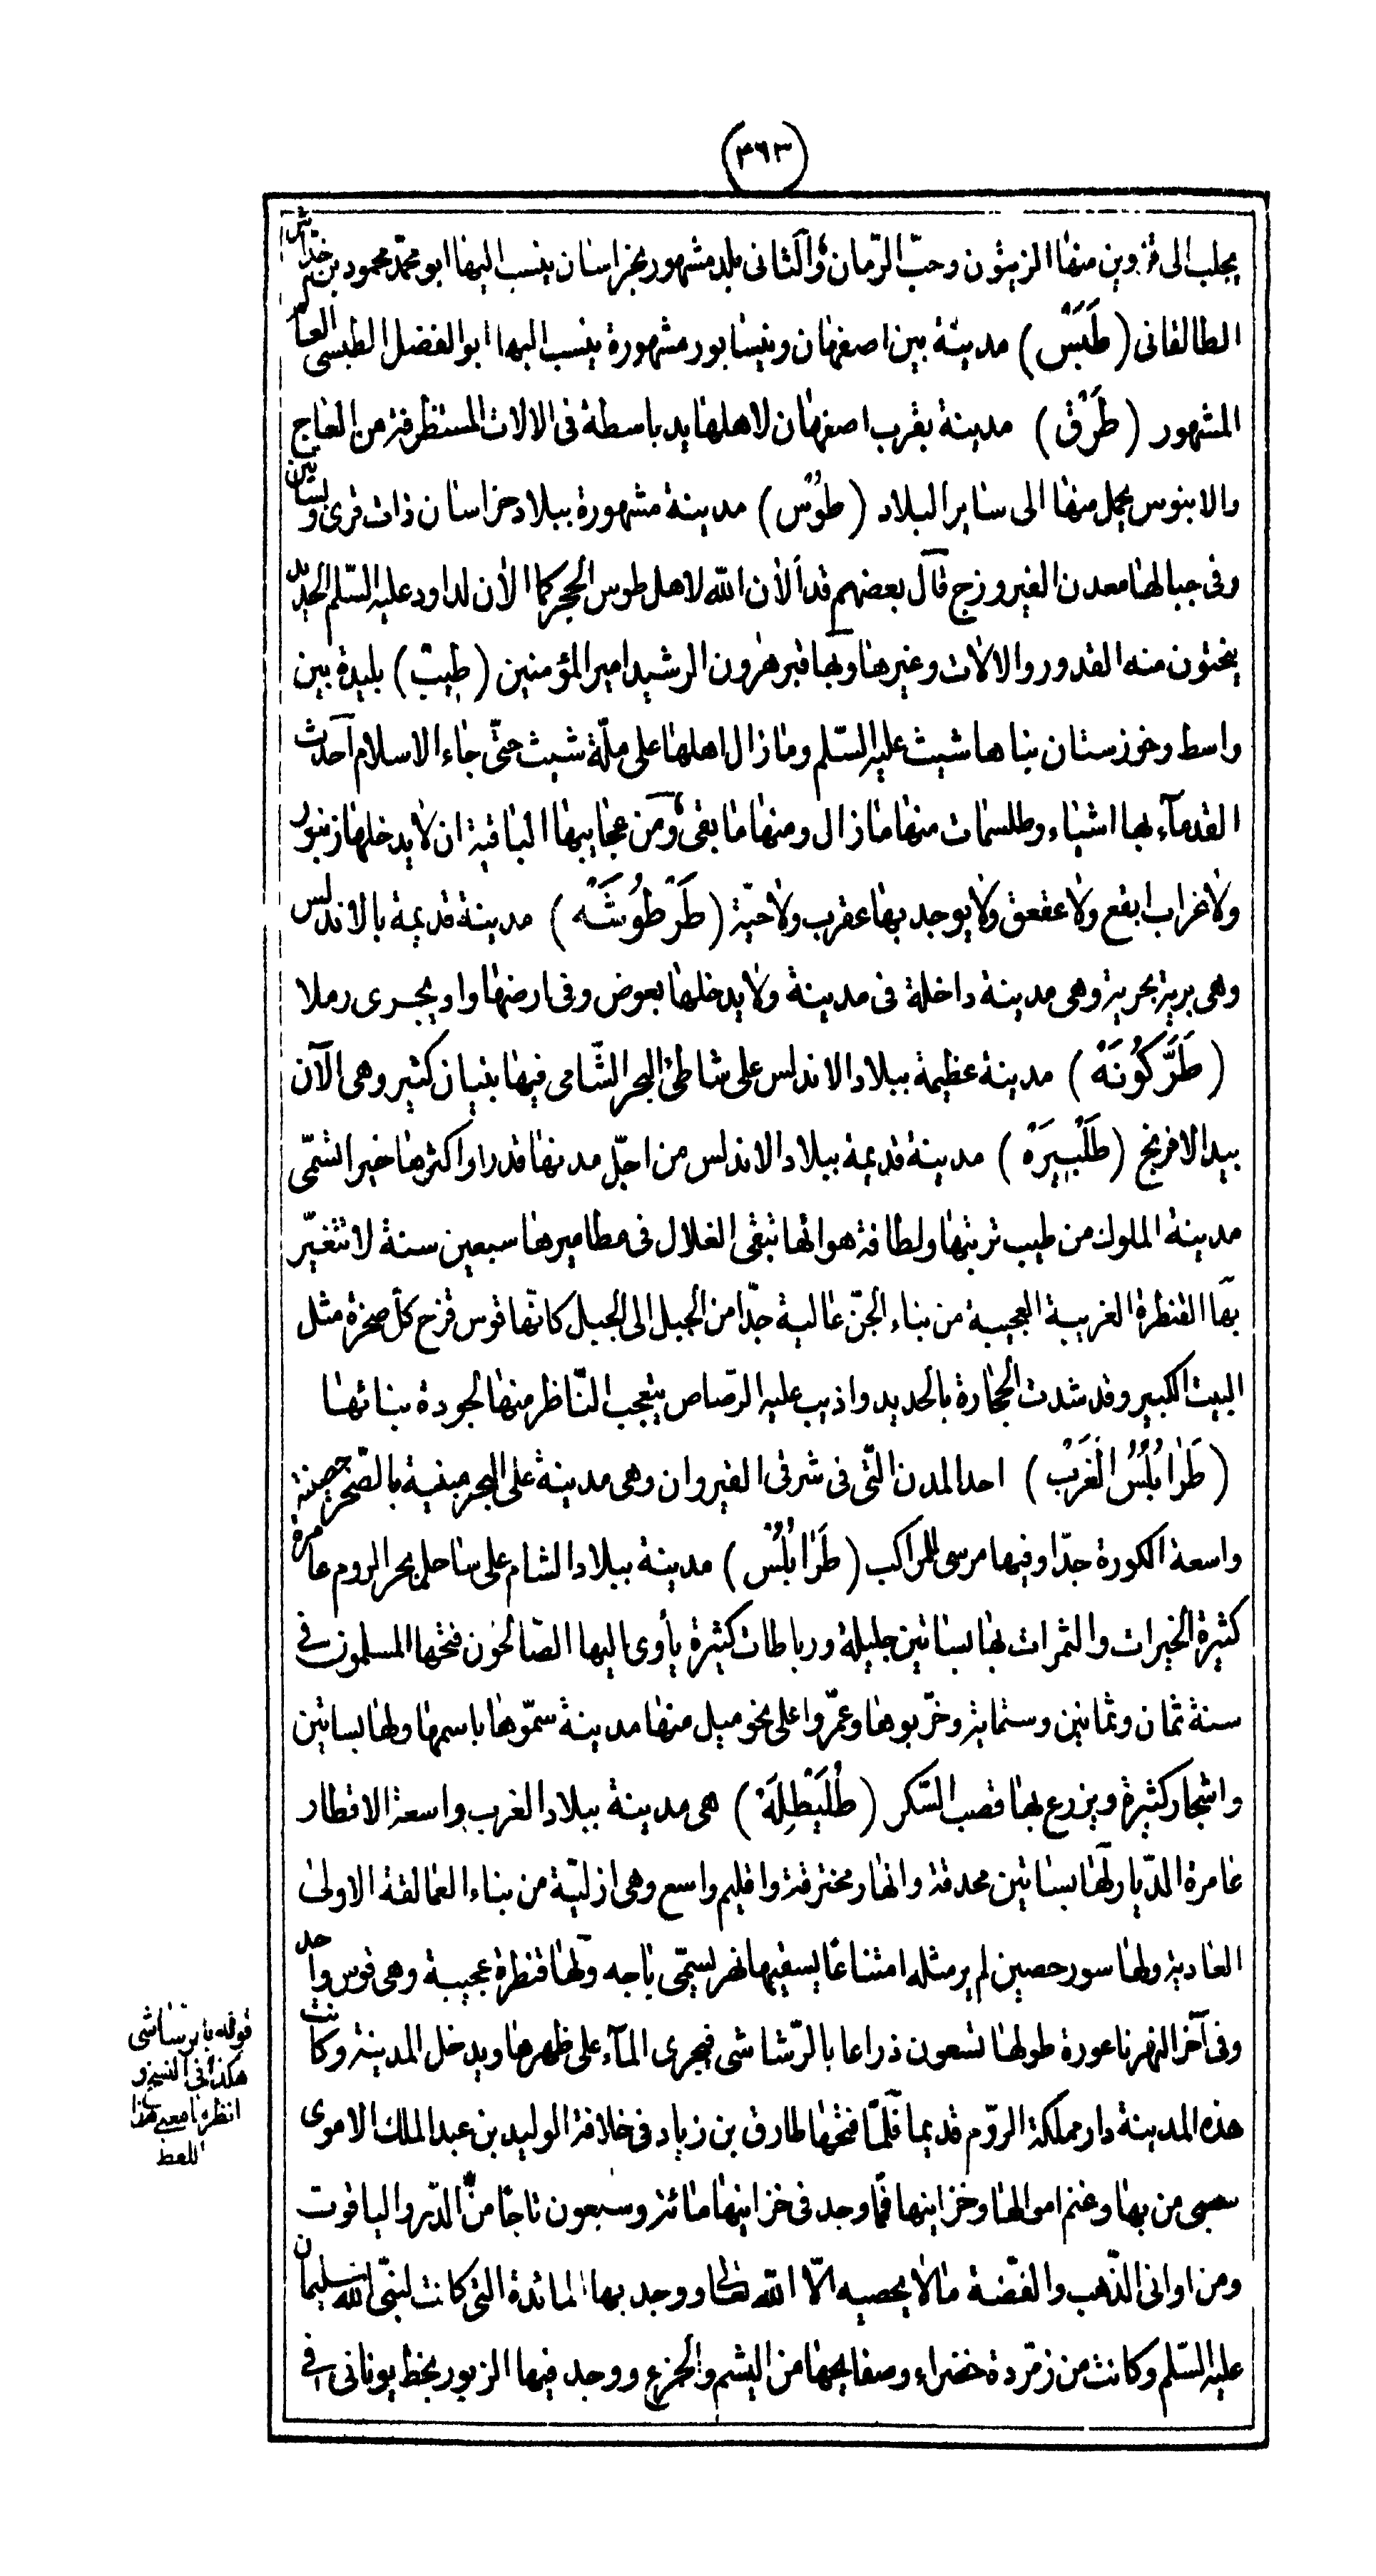 (۴٦۳)
يجلب الى قزوين منها الزيتون وحبّ الرّمان والثانى بلد مشهور بخراسان ينسب اليها ابو محمّد محمود بن خدّاش
الطالقانى (طَبَسْ) مدينة بين اصفهان ونيسابور مشهورة ينسب اليها ابو الفضل الطبسى العالم
المشهور (طَرْقْ) مدينة بقرب اصفهان لاهلها يد باسطة فى الالات المستظرفة من العاج
والابنوس يحمل منها الى ساير البلاد (طوُسْ) مدينة مشهورة ببلاد خراسان ذات قرى وبساتين
وفى جبالها معدن الفيروزج قال بعضهم قد ألان الله لاهل طوس الحجر كما الان لداود عليه السّلم الحديد
ينحتون منه القدور والالات وغيرها وبها قبر هرون الرشيد امير المؤمنين (طِيبْ) بليدة بين
واسط وخوزستان بناها شيث عليه السّلم وما زال اهلها على ملّة شيث حتّى جاء الاسلام احدث
القدمآء بها اشياء وطلسمات منها ما زال ومنها ما بقى ومن عجايبها الباقية ان لا يدخلها زنبور
ولا غراب ابقع ولا عقعق ولا يوجد بها عقرب ولا حيّة (طَرْطوُشَهْ) مدينة قديمة بالاندلس
وهى برية بحرية وهى مدينة داخلة فى مدينة ولا يدخلها بعوض وفى ارضها واد يجرى رملا
(طَرَّكوُنَهْ) مدينة عظيمة ببلاد الاندلس على شاطئ البحر الشّامى فيها بنيان كثير وهى الآن
بيد الافرنج (طَلَبِيرَهْ) مدينة قديمة ببلاد الاندلس من اجلّ مدنها قدرا واكثرها خيرا تسمّى
مدينة الملوك من طيب تربتها ولطافة هوائها تبقى الغلال فى مطاميرها سبعين سنة لا تتغيّر
بها القنطرة الغريبة العجيبة من بناء الجنّ عالية جدّا من الجبل الى الجبل كانّها قوس قزح كلّ صخرة مثل
البيت الكبير وقد شدت الحجارة بالحديد واذيب عليه الرّصاص يتعجب النّاظر منها لجودة بنائها
(طَرابُلُسُ الْغَرَبْ) احد المدن الّتى فى شرقى القيروان وهى مدينة على البحر مبنية بالصّخر حصينة
واسعة الكورة جدّا وفيها مرسى للمراكب (طَرابُلُسْ) مدينة ببلاد الشام على ساحل بحر الروم عامرة
كثيرة الخيرات والثمرات بها بساتين جليلة ورباطات كثيرة يأوى اليها الصّالحون فتحها المسلمون فى
سنة ثمان وثمانين وستماية وخرّبوها وعمّروا على نحو ميل منها مدينة سمّوها باسمها ولها بساتين
واشجار كثيرة ويزرع بها قصب السّكر (طُلَيْطِلَهْ) هى مدينة ببلاد الغرب واسعة الاقطار
عامرة الدّيار ولها بساتين محدقة وانهار مخترقة واقليم واسع وهى ازليّة من بناء العمالقة الاولى
العادية ولها سور حصين لم ير مثله امتناعًا يسقيها نهر يسمّى باجه ولها قنطرة عجيبة وهى قوس واحد
وفى آخر النهر ناعورة طولها تسعون ذراعا بالرّشاشى فيجرى المآء على ظهرها ويدخل المدينة وكانت
هذه المدينة دار مملكة الروّم قديما فلمّا فتحها طارق بن زياد فى خلافة الوليد بن عبد الملك الاموى
سبى من بها وغنم اموالها وخزاينها فمّا وجد فى خزاينها مائة وسبعون تاجًا من الدّر والياقوت
ومن اوانى الذّهب والفضّة ما لا يحصيه الّا الله تعالى ووجد بها المائدة التى كانت لنبىّ الله سليمان
عليه السّلم وكانت من زمرّدة خضراء وصفايحها من اليشم والجزع ووجد فيها الزبور بخط يونانى فى
قوله با رشاشى
هكذا فى النسخ و
انظر ما معنى هذا
اللفظ